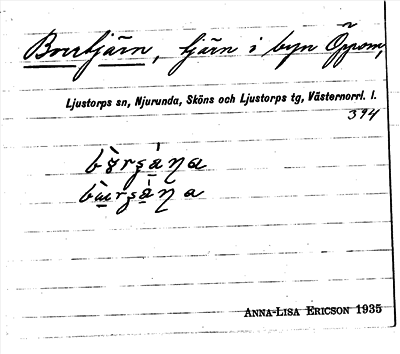 Borrtjärn, tjärn i byn Öppom,
Ljustorps sn, Njurunda, Sköns och Ljustorps tg, Västernorrl. l.
394
Anna-Lisa Ericson 1935